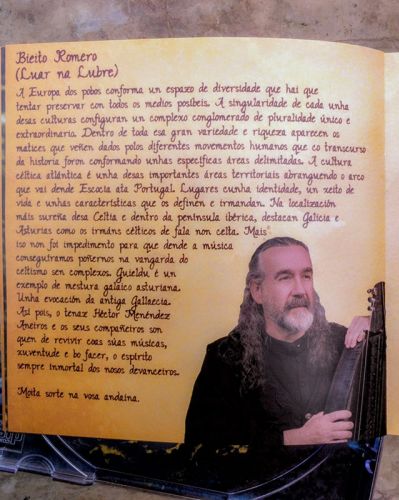 Bieito Romero
(Luar na Lubre)
A Europa dos pobos conforma un espazo de diversidade que hai que
tentar preservar con todos os medios posibeis. A singularidade de cada unha
desas culturas configuran un complexo conglomerado de pluralidade único e
extraordinario. Dentro de toda esa gran variedade e riqueza aparecen os
matices que veñen dados polos diferentes movementos humanos que co transcurso
da historia foron conformando unhas específicas áreas delimitadas. A cultura
céltica atlántica é unha desas importantes áreas territoriais abranguendo o arco
que vai dende Escocia ata Portugal. Lugares cunha identidade, un xeito de
vida e unhas características que os definen e irmandan. Na localización
máis sureña desa Celtia e dentro da península ibérica, destacan Galicia e
Asturias como os irmáns célticos de fala non celta. Mais
iso non foi impedimento para que dende a música
conseguiramos poñernos na vangarda do
celtismo sen complexos. Guieldu é un
exemplo de mestura galaico asturiana.
Unha evocación da antiga Gallaecia.
Así pois, o tenaz Héctor Menéndez
Aneiros e os seus compañeiros son
quen de revivir coas súas músicas,
xuventude e bo facer, o espírito
sempre inmortal dos nosos devanceiros.
Moita sorte na vosa andaina.